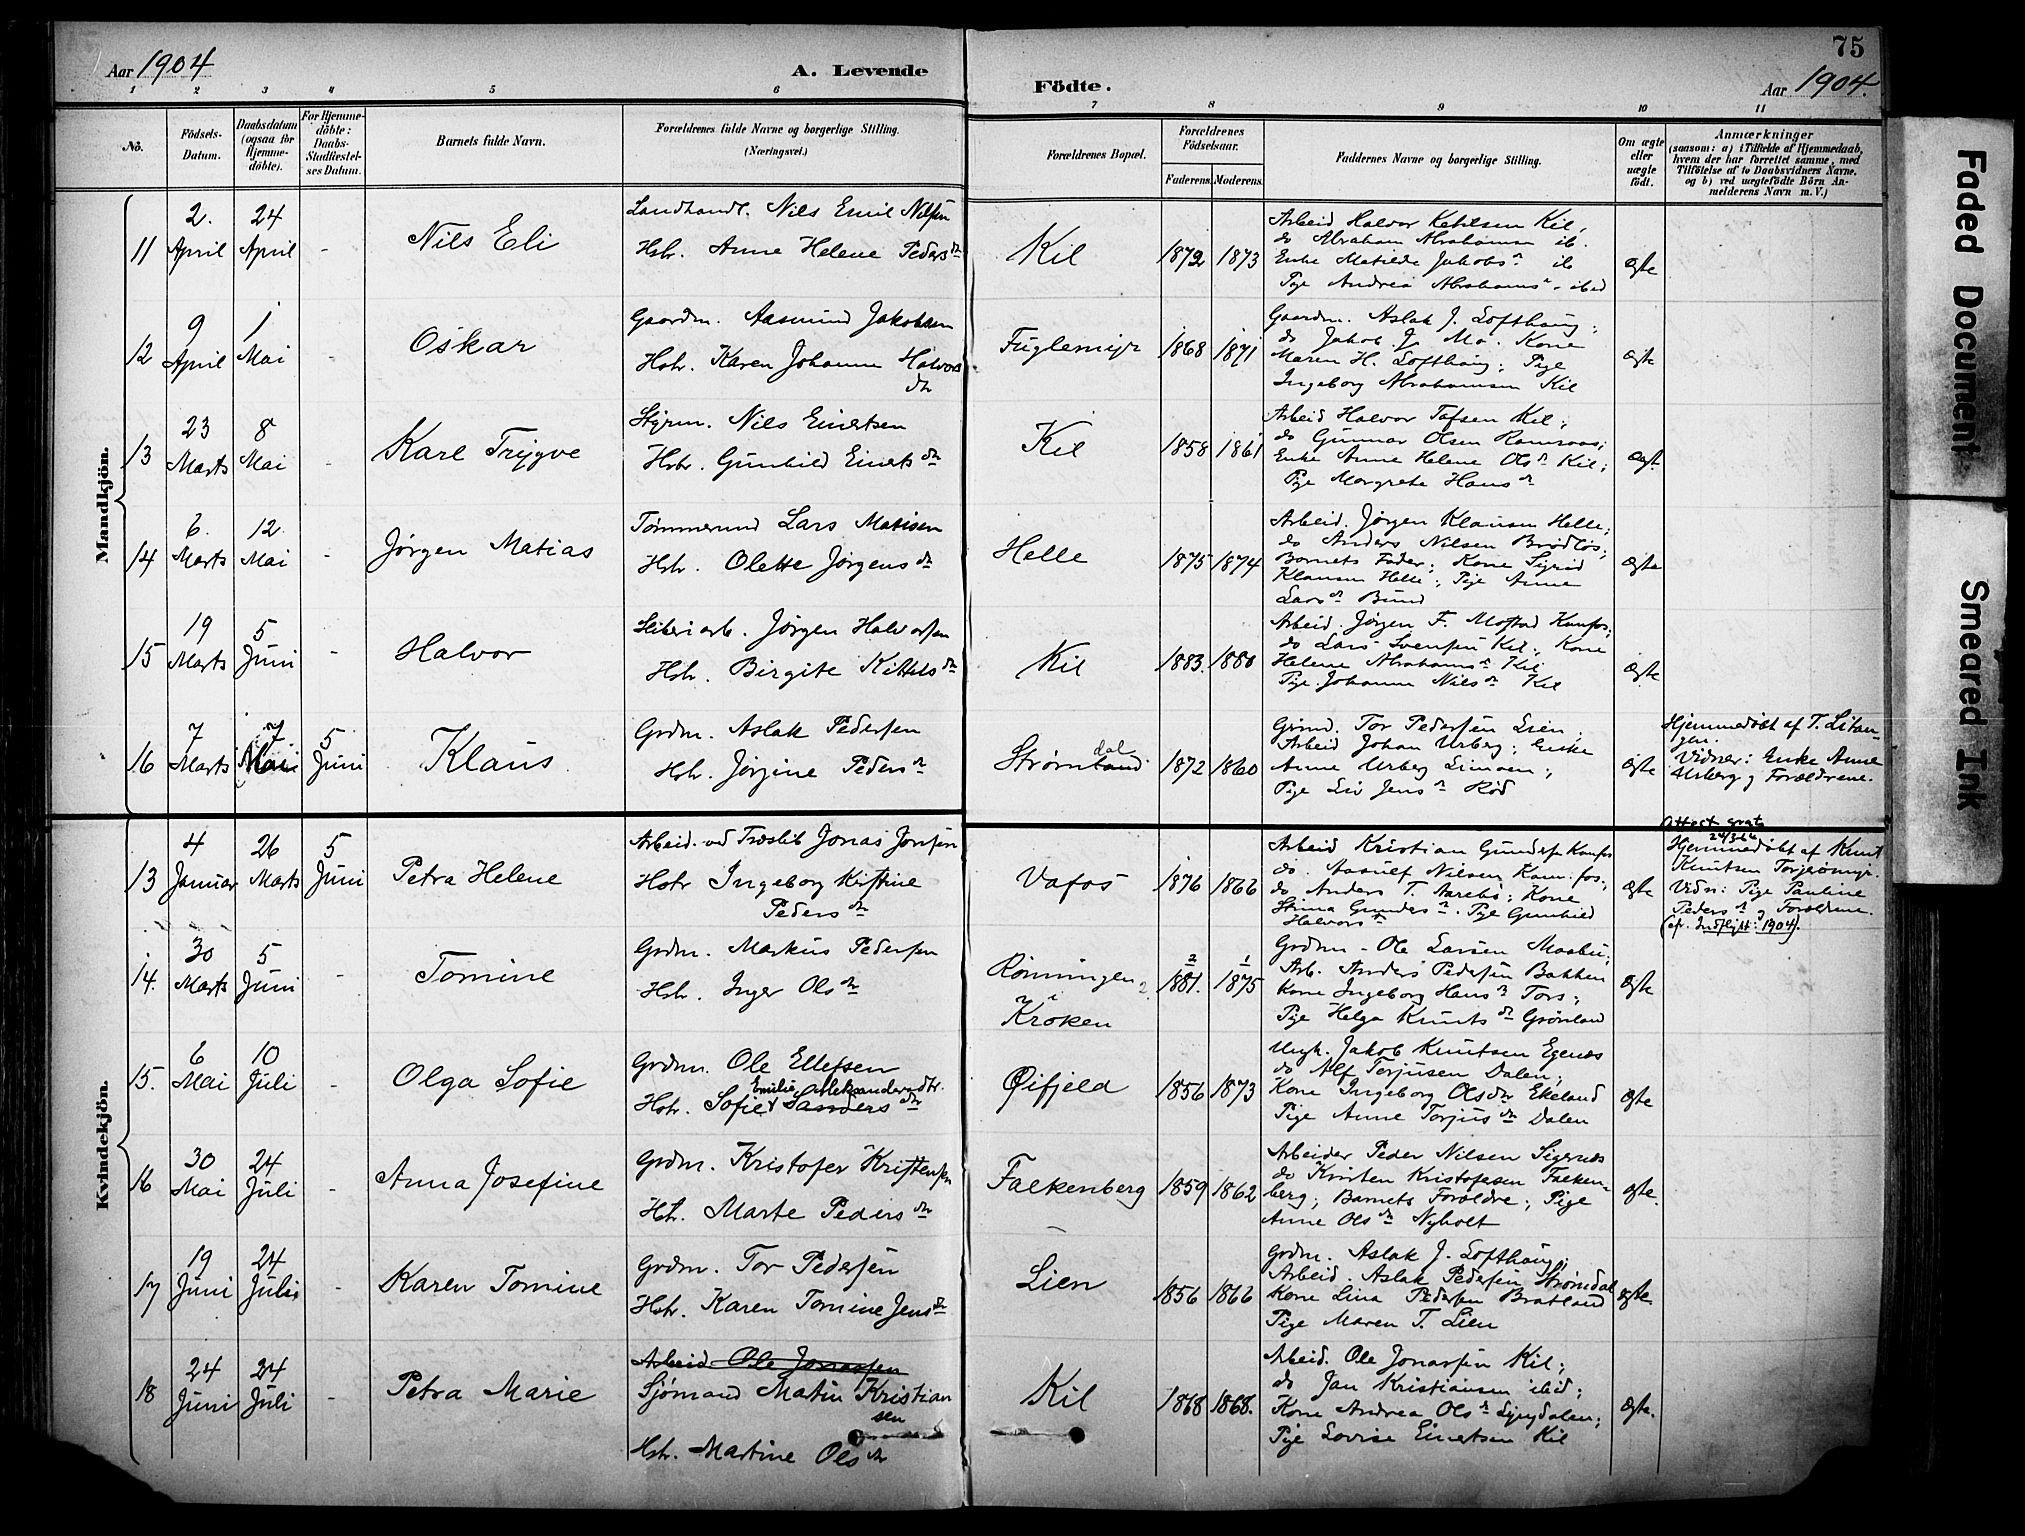 75
Aar 1904
A. Levende
Födte.
Aar 1904.
1 2 3 4 5 6 7 8 9 10 11
No.
Födsels-
Datum.
Daabsdatum
(ogsaa for
Hjemme-
döbte).
For Hjemme-
döbte:
Daabs-
Stadfæstel-
ses Datum.
Barnets fulde Navn.
Forældrenes fulde Navne og borgerlige Stilling.
(Næringsvei.)
Forældrenes Bopæl.
Forældrenes
Födselsaar.
Faderens. Moderens.
Faddernes Navne og borgerlige Stilling.
Om ægte
eller
uægte
födt.
Anmærkninger
(saasom: a) i Tilfælde af Hjemmedaab,
hvem der har forrettet samme, med
Tilföielse af to Daabsvidners Navne,
og b) ved uægtefödte Börn An-
melderens Navn m. V.)
Mandkjön.
11
2. April
24 April
-
Nils Eli
Landhandl. Nils Emil Nilsen
Hstr. Anne Helene Pedersdr
Kil
1872 1873
Arbeid Halvor Ketilsen Kil,
do Abraham Abrahamsen ib.
Enke Matilde Jakobsdr ib
Pige Andrea Abrahamsdr ibid
ægte
12
9 April
1 Mai
Oskar
Gaardm. Aasmund Jakobsen
Hstr. Karen Johanne Halvors
dr
Fuglemyr
1868 1871
Gaardm. Aslak J. Lofthaug;
do Jakob J. Mo. Kone
Maren H. Lofthaug; Pige
Ingeborg Abrahamsen Kil
ægte
13
23 Marts
8 Mai
-
Karl Trygve
Styrm. Nils Einertsen
Hstr. Gunhild Einertsdr
Kil
1858 1861
Arbeid Halvor Tofsen Kil;
do Gunnar Olsen
Enke Anne Helene Olsdr Kil;
Pige Margrete Hansdr
ægt.
14
6. Marts
12. Mai
-
Jørgen Matias
Tømmermd Lars Matisen
Hstr. Olette Jørgensdr
Helle
1875 1874
Arbeid. Jørgen Klausen Helle;
do Anders Nilsen Brødløs;
Barnets Fader; Kone Sigrid
Klausen Helle; Pige Anne
Larsdr Bund
ægte
15
19 Marts
5 Juni
-
Halvor
Sliberiarb. Jørgen Halvorsen
Hstr. Birgite Kittelsdr
Kil
1883. 1880
Arbeid. Jørgen F. Mostad Kamfos;
do Lars Svensen Kil; Kone
Helene Abrahamsdr Kil
Pige Johanne Nilsdr Kil
ægte
16
7 Marts
7 Mai
5 Juni
Klaus
Grdm. Aslak Pedersen
Hstr. Jørgine Pedersdr
Strømland
dal
1872 1860
Grdmd. Tor Pedersen Lien;
Arbeid Johan Urberg; Enke
Anne Urberg
Pige Liv Jensdr Rød
ægte
Hjemmedøbt af T. Litan-
gen.
Vidner: Enke Anne
Urberg og Forældrene.
Kvindekjön.
13
4 Januar
26 Marts
5 Juni
Petra Helene
Arbeid. ved Træslib Jonas Jonsen
Hstr Ingeborg Kistine
Pedersdr
Vafos
1876 1866
Arbeid Kristian Gundersen Kamfos
do. Nilsen Kamfos;
do Anders T. Aarebo; Kone
Stina Gundersdr. Pige Gunhild
Halvorsdr
ægte
Attest grat.
Hjemmedøbt af Knut
Knutsen
Vidn: Pige Pauline
Pedersdr og Forældrene.
14.
30 Marts
5 Juni
-
Tomine
Grdm. Markus Pedersen
Hstr. Inger Olsdr
Rønningen
i
Kroken
1881. 1875
Grdm. Ole Larsen
Arb. Anders Pedersen Bakken
Kone Ingeborg Hansdr Tors;
Pige Helga Knutsdr Grønland
ægte
15.
6 Mai
10 Juli
-
Olga Sofie
Grdm. Ole Ellefsen
Emilie Aleksandersdtr.
Hstr. Sofie Sandersdr
Øifjeld
1856 1873
Ungk. Jakob Knutsen Egenes
do Alf Terjusen Dalen;
Kone Ingeborg Olsdr Ekeland
Pige Anne Torjusdr Dalen
ægte
16
30 Mai
24 Juli
-
Anna Josefine
Grdm. Kristofer Kristensen
Hst. Marte Pedersdr
Falkenberg
1859 1862
Arbeider Peder Nilsen Sigernes
do Kristen Kristofersen Falken-
berg; Barnets Forældre; Pige
Anne Olsdr Nyholt
ægte.
17
19 Juni
24 Juli
-
Karen Tomine
Grdm. Tor Pedersen
Hstr. Karen Tomine Jensdr
Lien
1856 1866
Grdm. Aslak J. Lofthaug;
Arbeid. Aslak Pedersen Strømdal
Kone Lina Pedersen Bratland
Pige Maren T. Lien
ægte
18
24 Juni
24 Juli
-
Petra Marie
Arbeid Ole Jonassen
Sjømand Martin Kristian
sen
Hstr. Martine Olsdr
Kil
1868 1868.
Arbeid. Ole Jonassen Kil;
do Jan Kristiansen ibid;
Kone Andrea Olsdr Lyngdalen;
Pige Lovise Einertsen Kil
ægte.
Faded Document
Smeared Ink